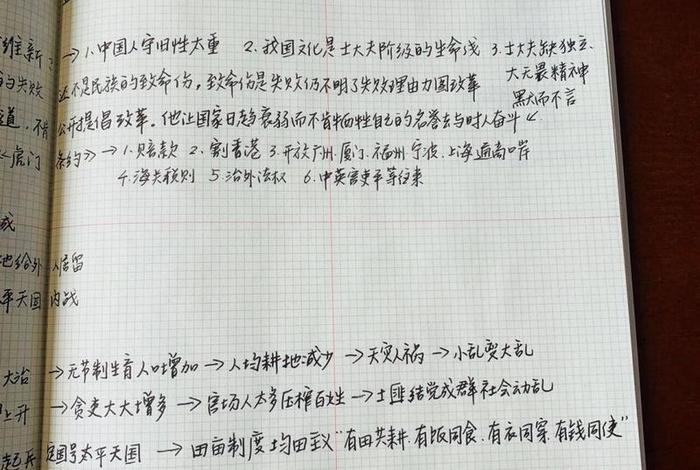 维新 → 1.中国人守旧性太重 2.我国文化是士大夫阶级的生命线 3.士大夫缺独立、
的失败 还不是民族的致命伤，致命伤是失败仍不明了失败理由力图改革 大无畏精神
道，不肯公开提倡改革。他让国家日趋衰弱而不肯牺牲自己的名誉去与时人奋斗 默而不言
虎门条约》→ 1.赔款 2.割香港 3.开放广州.厦门.福州.宁波.上海通商口岸
4.海关税则 5.治外法权 6.中英官吏平等往来
成
地给外人居留
平天国内战
大治 → 无节制生育人口增加 → 人均耕地减少 → 天灾人祸 → 小乱变大乱
上升 → 贪吏大大增多 → 官场人太多压榨百姓 → 土匪结党成群社会动乱
起兵定国号太平天国 → 田亩制度均田主义"有田共耕.有饭同食.有衣同穿.有钱同使"